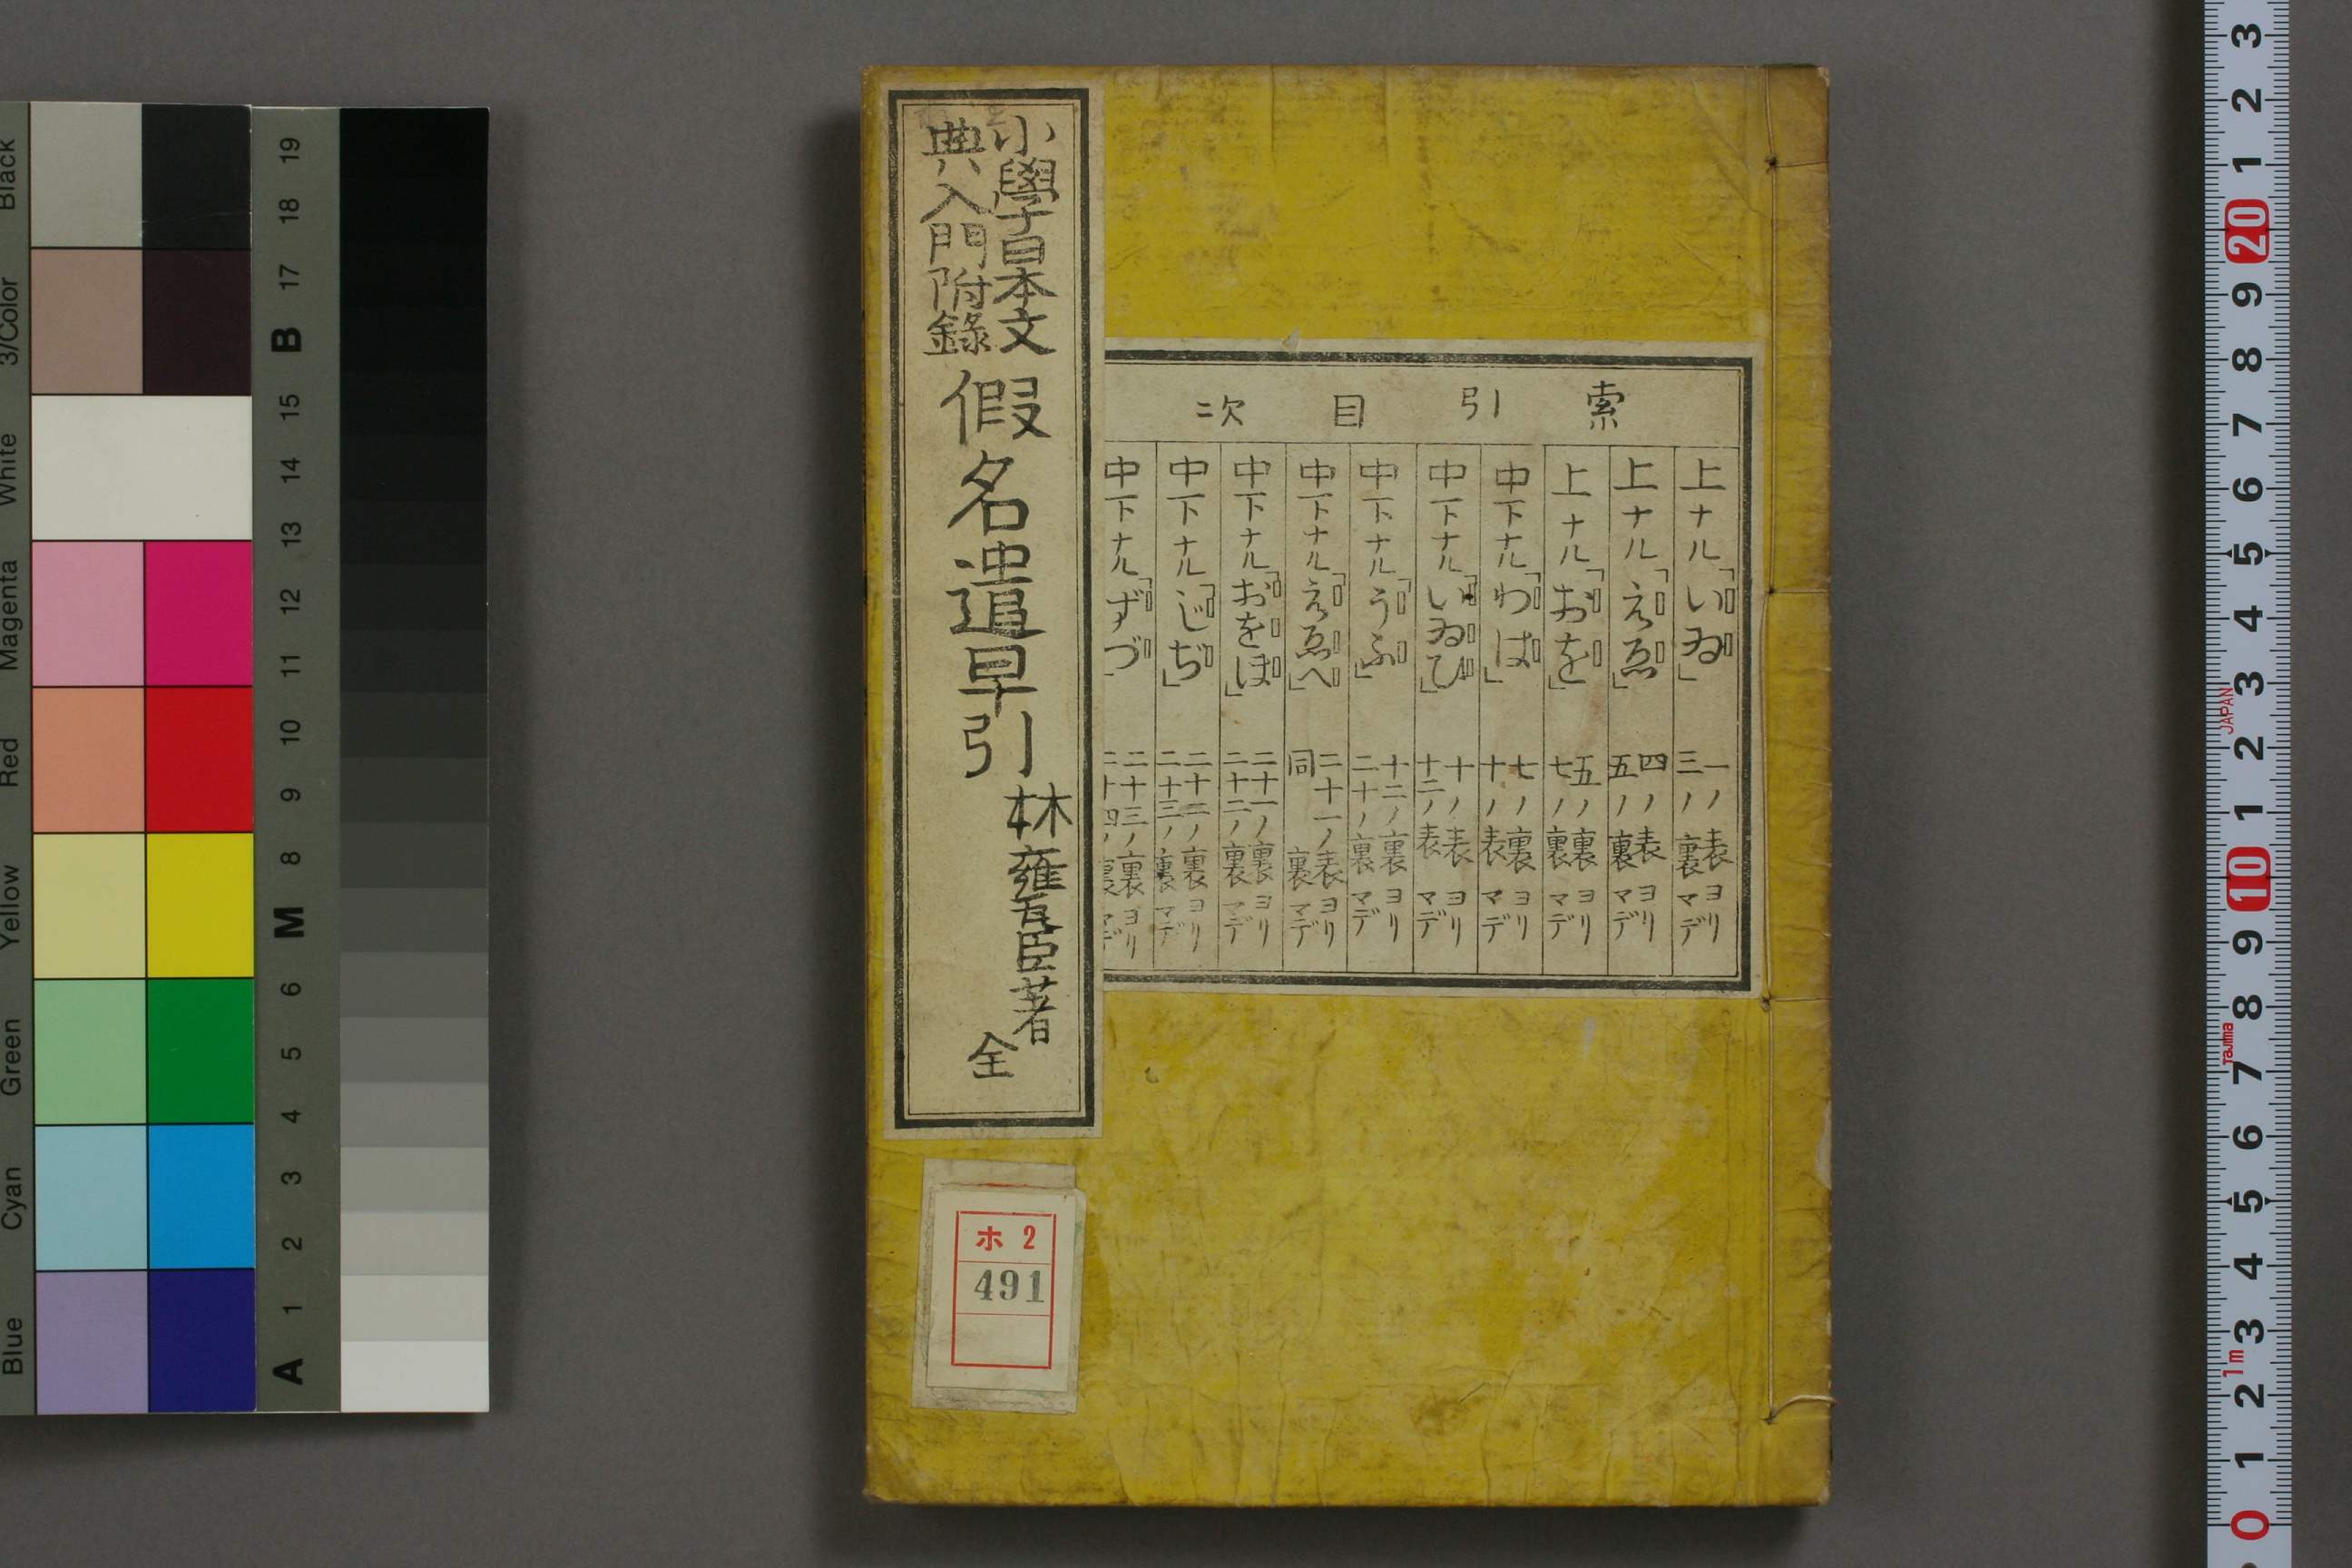 小學日本文
典入門附錄
假名遣早引
林甕臣著
全
索引目次
上ナル「いゐ」 一ノ表ヨリ 三ノ裏マデ
上ナル「えゑ」 四ノ表ヨリ 五ノ裏マデ
上ナル「おを」 五ノ裏ヨリ 七ノ裏マデ
中下ナル「わは」 七ノ裏ヨリ 十ノ表マデ
中下ナル「いゐひ」 十ノ表ヨリ 十二ノ表マデ
中下ナル「うふ」 十二ノ裏ヨリ 二十ノ裏マデ
中下ナル「えゑへ」 二十一ノ表ヨリ 同裏マデ
中下ナル「おをほ」 二十一ノ裏ヨリ 二十二ノ裏マデ
中下ナル「じぢ」 二十二ノ裏ヨリ 二十三ノ裏マデ
中下ナル「ずづ 二十三ノ裏ヨリ 二十四ノ裏マデ
ホ 2
491
Black
3/Color
White
Magenta
Red
Yellow
Green
Cyan
Blue
19
18
17
B
15
14
13
12
11
10
9
8
M
6
5
4
3
2
1
A
3
2
1
20
9
8
7
6
5
4
3
JAPAN
2
1
10
9
8
Tajima
7
6
5
4
3
1m
2
1
0